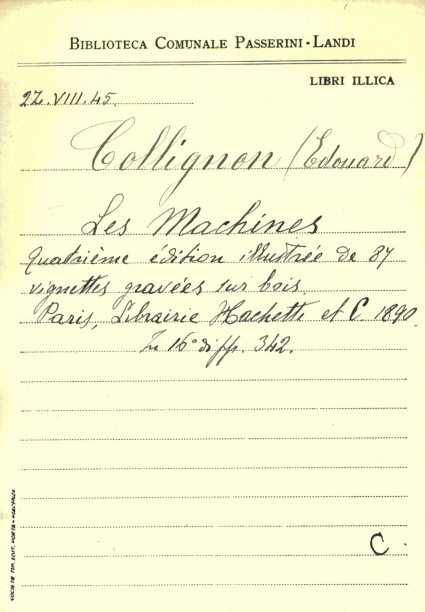 BIBLIOTECA COMUNALE PASSERINI-LANDI
LIBRI ILLICA
22.VIII.45.
Collignon (Edouard)
Les Machines
Quatrième édition illustrée de 87
vignettes gravées sur bois.
Paris, Librairie Hachette et C. 1890.
In 16° di pp. 342.
C.